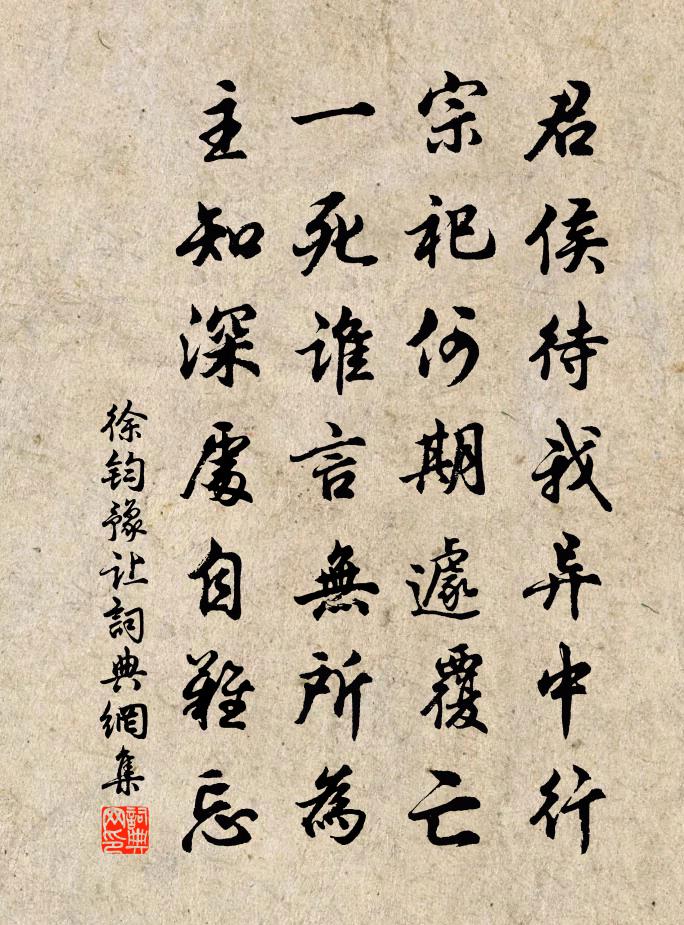 君侯待我异中行
宗祀何期遽覆亡
一死谁言無所為
主知深處自難忘
徐鈞豫让詞典網集
詞典网印